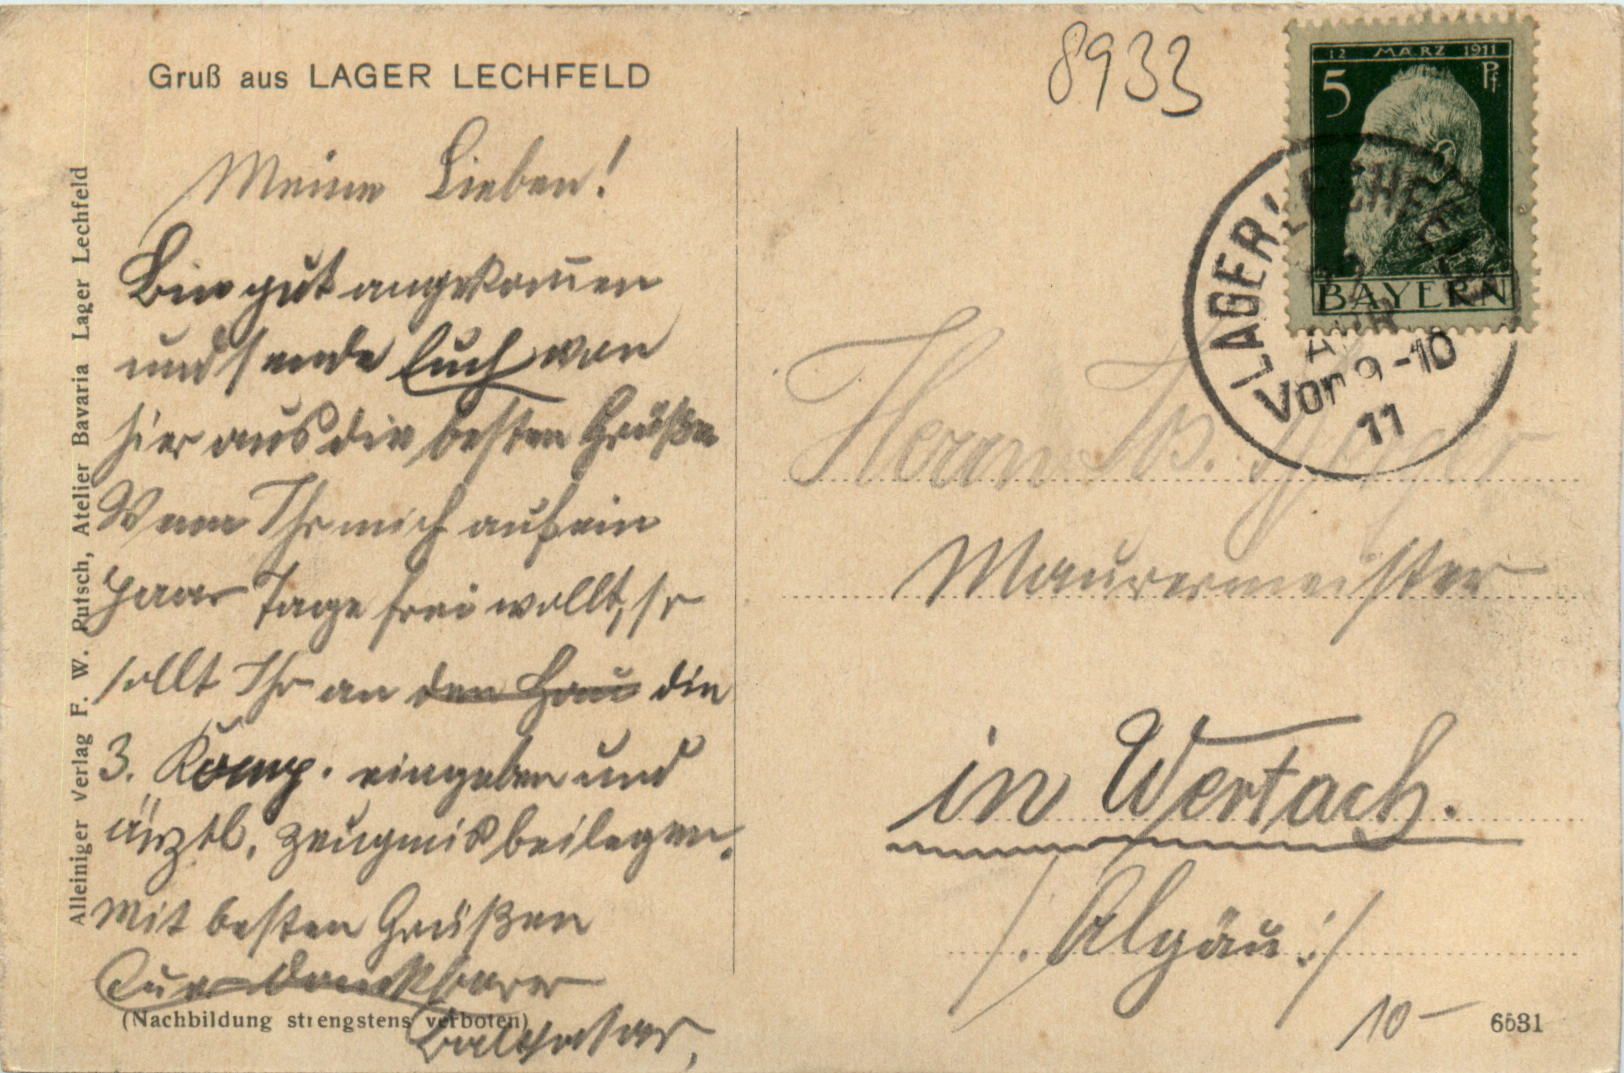 Gruß aus LAGER LECHFELD
Meine Lieben!
Bin gut angekom̅en
und sende Euch von
hier aus die besten Grüße
Wenn Ihr mich auf ein
paar Tage frei wollt, so
sollt Ihr an den Hau die
3. Komp. eingeben und
ärztl. Zeugnis beilegen.
Mit besten Grüßen
Euer dankbarer
Balthasar,
(Nachbildung strengstens verboten)
Alleiniger Verlag F. W. Putsch, Atelier Bavaria Lager Lechfeld
8933
12 MÄRZ 1911
5 Pf.
BAYERN
LAGER LECHFELD
Vor 9-10
11
Herrn
Maurermeister
in Wertach.
/. Algäu :/
10-
6531